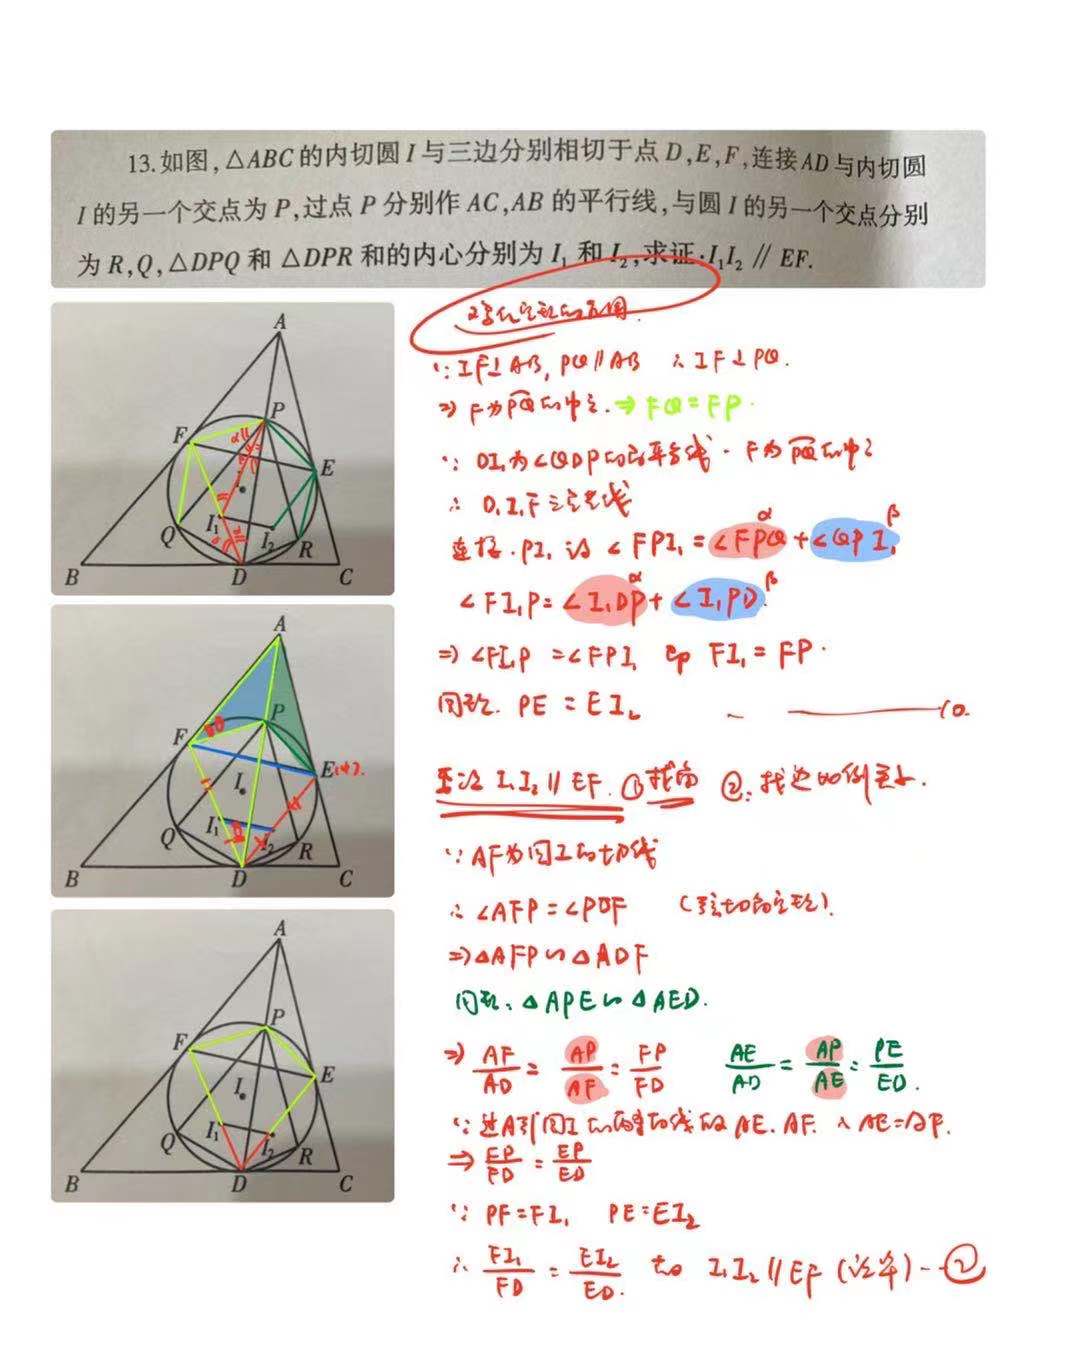 13.如图,△ABC的内切圆I与三边分别相切于点D,E,F,连接AD与内切圆
I的另一个交点为P,过点P分别作AC,AB的平行线,与圆I的另一个交点分别
为R,Q,△DPQ和△DPR和的内心分别为I₁和I₂,求证:I₁I₂∥EF.
A
P
F
E
I
I₁
I₂
Q
R
B
D
C
∵IF⊥AB, PQ∥AB ∴IF⊥PQ.
⇒F为PQ的中点.⇒FQ=FP.
∵DI₁为∠QDP的角平分线.F为PQ的中点
∴D,I,F三点共线
连接.PI₁ 则∠FPI₁=∠FPQ+∠QPI₁
α
β
∠FI₁P=∠I₁DP+∠I₁PD.
α
β
⇒∠FI₁P=∠FPI₁ 即FI₁=FP.
同理.PE=EI₂
A
P
F
E
I
I₁
I₂
Q
R
B
D
C
至证I₁I₂∥EF.①找角 ②.找边的例关系.
∵AF为圆I的切线
∴∠AFP=∠PDF (弦切角定理).
⇒△AFP∽△ADF
同理:△APE∽△AED.
A
P
F
E
I
I₁
I₂
Q
R
B
D
C
⇒AF/AD=AP/AF=FP/FD AE/AD=AP/AE=PE/ED.
∵过A引圆I的两条切线段AE.AF.∴AE=AF.
⇒FP/FD=EP/ED
∵PF=FI₁ PE=EI₂
∴FI₁/FD=EI₂/ED. to I₁I₂∥EF(证毕)--②